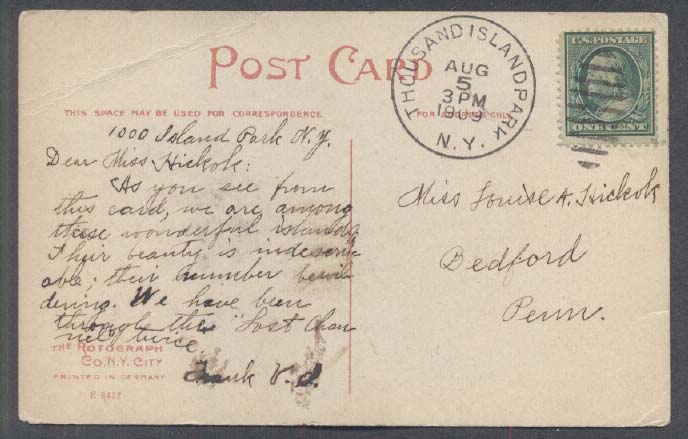 POST CARD
THIS SPACE MAY BE USED FOR CORRESPONDENCE
FOR ADDRESS ONLY
THOUSAND ISLAND PARK
AUG
5
3 PM
1909
N.Y.
U.S. POSTAGE
ONE CENT
1000 Island Park N.Y.
Dear Miss Hickok:
As you see from
this card, we are among
these wonderful islands.
Their beauty is indescrib-
able; their number bewil
dering. We have been
through the "Lost Chan
nel" twice.
Frank V.
Miss Louise A. Hickok
Bedford
Penn.
THE ROTOGRAPH
CO. N.Y. CITY
PRINTED IN GERMANY